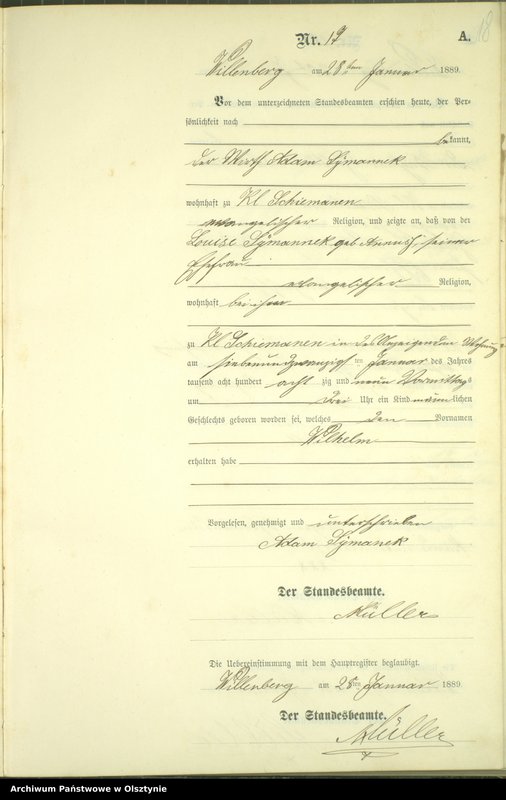 18
Nr. 19 A.
Willenberg am 28ten Januar 1889.
Vor dem unterzeichneten Standesbeamten erschien heute, der Per-
sönlichkeit nach
bekannt,
der Wirth Adam Symannek
wohnhaft zu Kl Schiemanen
evangelischer Religion, und zeigte an, daß von der
Louise Symannek geb Annuss, seiner
Ehefrau
evangelischer Religion,
wohnhaft bei ihm
zu Kl Schiemanen in des Anzeigenden Wohnung
am siebenundzwanzigsten Januar des Jahres
tausend acht hundert achtzig und neun Vormittags
um drei Uhr ein Kind männlichen
Geschlechts geboren worden sei, welches den Vornamen
Wilhelm
erhalten habe
Vorgelesen, genehmigt und unterschrieben
Adam Symanek
Der Standesbeamte.
Müller
Die Uebereinstimmung mit dem Hauptregister beglaubigt.
Willenberg am 28ten Januar 1889
Der Standesbeamte.
Müller
Archiwum Państwowe w Olsztynie